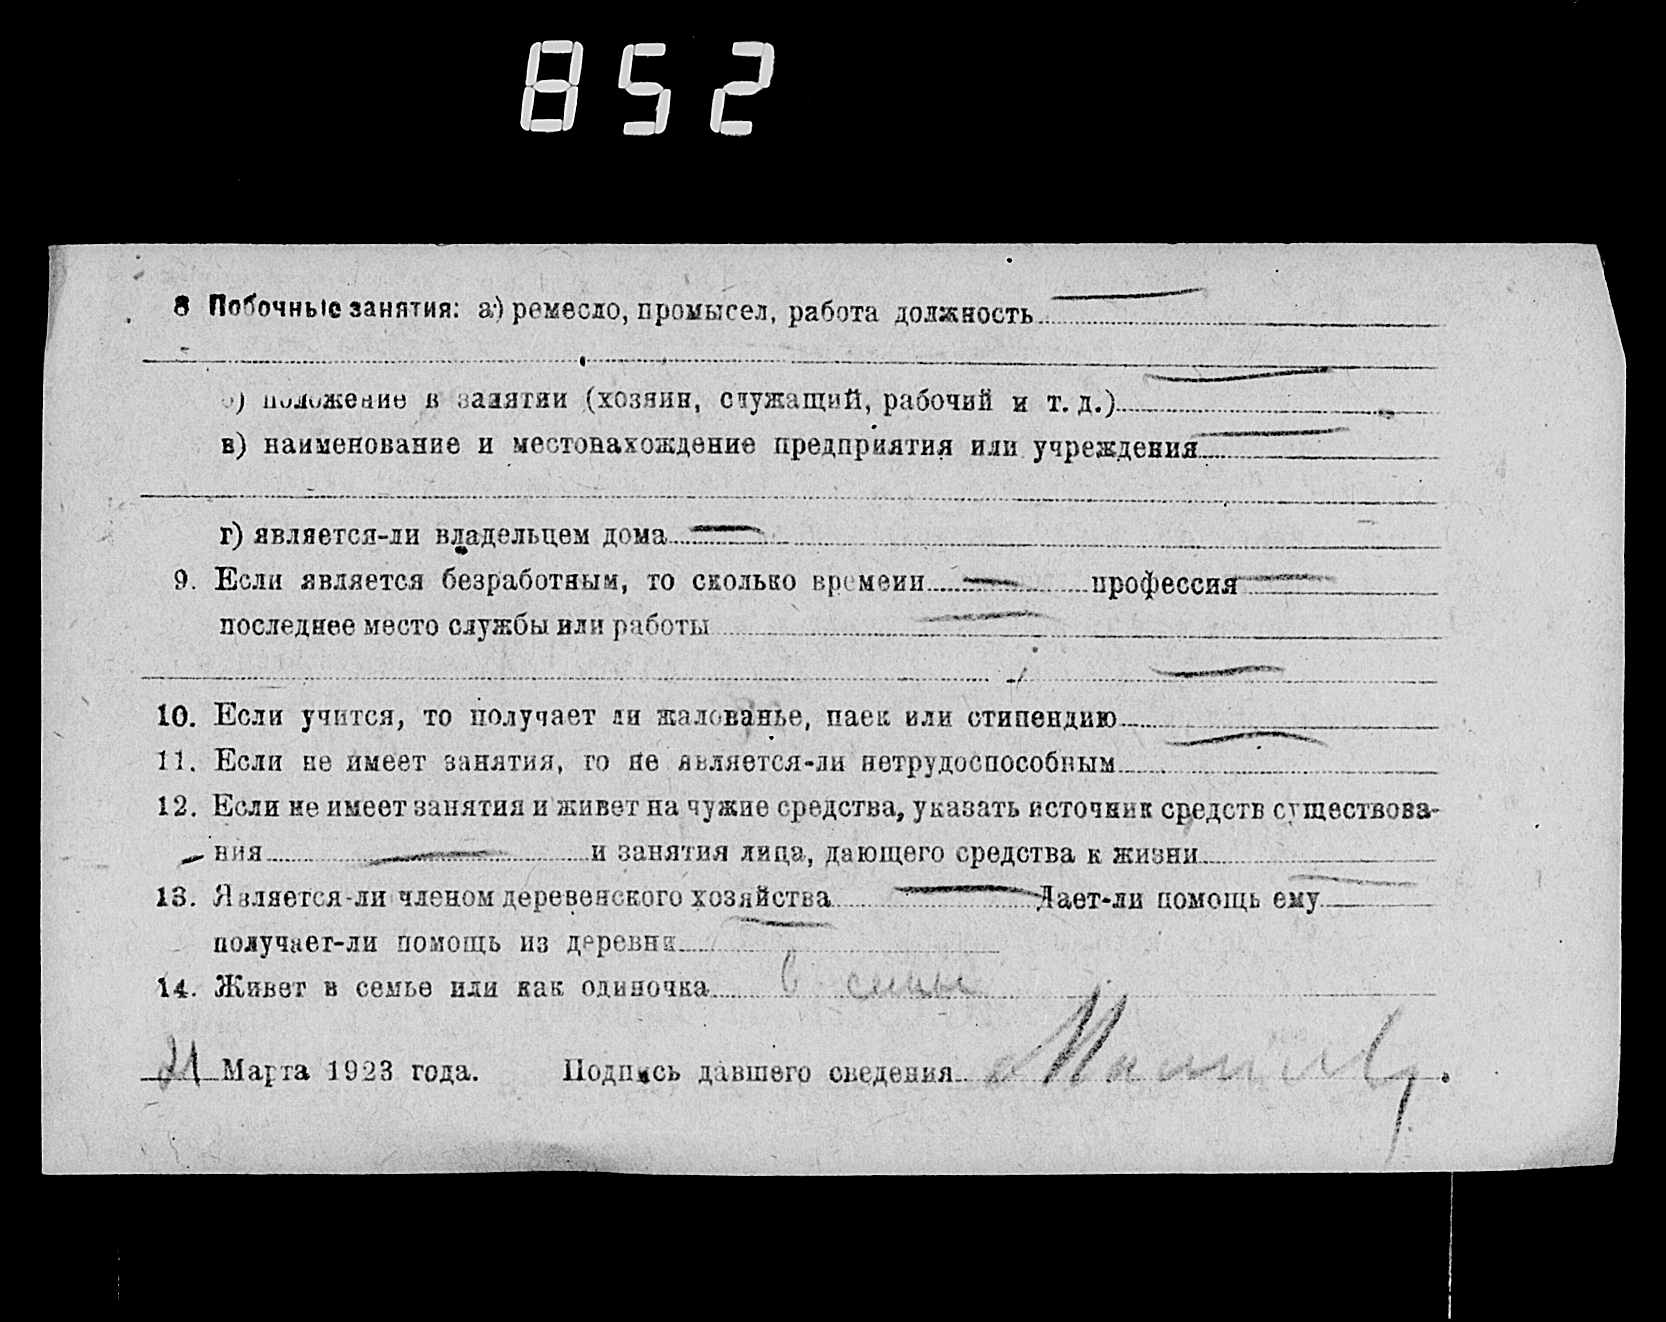 852
8 Побочные занятия: а) ремесло, промысел, работа должность
б) положение в занятии (хозяин, служащий, рабочий и т. д.)
в) наименование и местонахождение предприятия или учреждения
г) является-ли владельцем дома —
9. Если является безработным, то сколько времени — профессия —
последнее место службы или работы —
10. Если учится, то получает ли жалованье, паек или стипендию
11. Если не имеет занятия, то не является-ли нетрудоспособным
12. Если не имеет занятия и живет на чужие средства, указать источник средств существова-
ния — и занятия лица, дающего средства к жизни
13. Является-ли членом деревенского хозяйства — Дает-ли помощь ему
получает-ли помощь из деревни
14. Живет в семье или как одиночка в семье
21 Марта 1923 года. Подпись давшего сведения